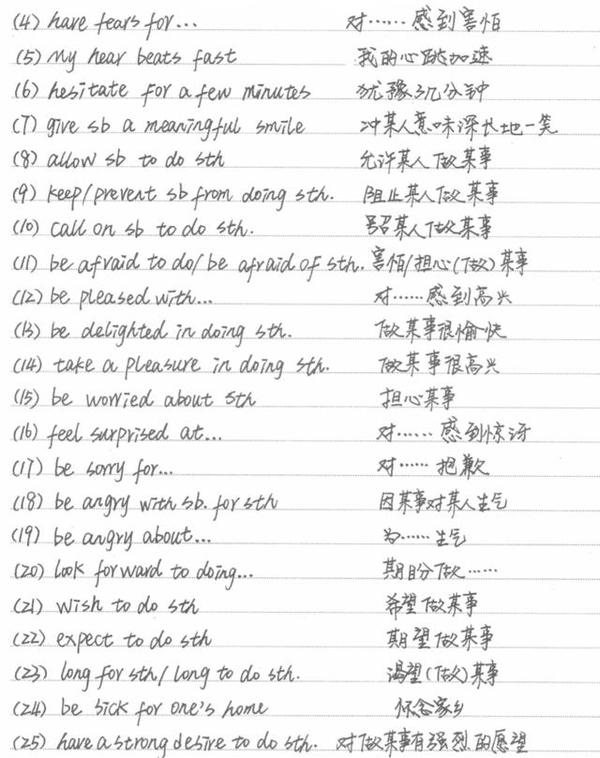 (4) have fears for... 对……感到害怕
(5) My hear beats fast 我的心跳加速
(6) hesitate for a few minutes 犹豫了几分钟
(7) give sb a meaningful smile 对某人意味深长地一笑
(8) allow sb to do sth 允许某人做某事
(9) keep/prevent sb from doing sth. 阻止某人做某事
(10) call on sb to do sth. 号召某人做某事
(11) be afraid to do/be afraid of sth. 害怕/担心(做)某事
(12) be pleased with... 对……感到高兴
(13) be delighted in doing sth. 做某事很愉快
(14) take a pleasure in doing sth. 做某事很高兴
(15) be worried about sth 担心某事
(16) feel surprised at... 对……感到惊讶
(17) be sorry for... 对……抱歉
(18) be angry with sb. for sth 因某事对某人生气
(19) be angry about... 为……生气
(20) look forward to doing... 期盼做……
(21) wish to do sth 希望做某事
(22) expect to do sth 期望做某事
(23) long for sth/long to do sth. 渴望(做)某事
(24) be sick for one's home 怀念家乡
(25) have a strong desire to do sth. 对做某事有强烈的愿望